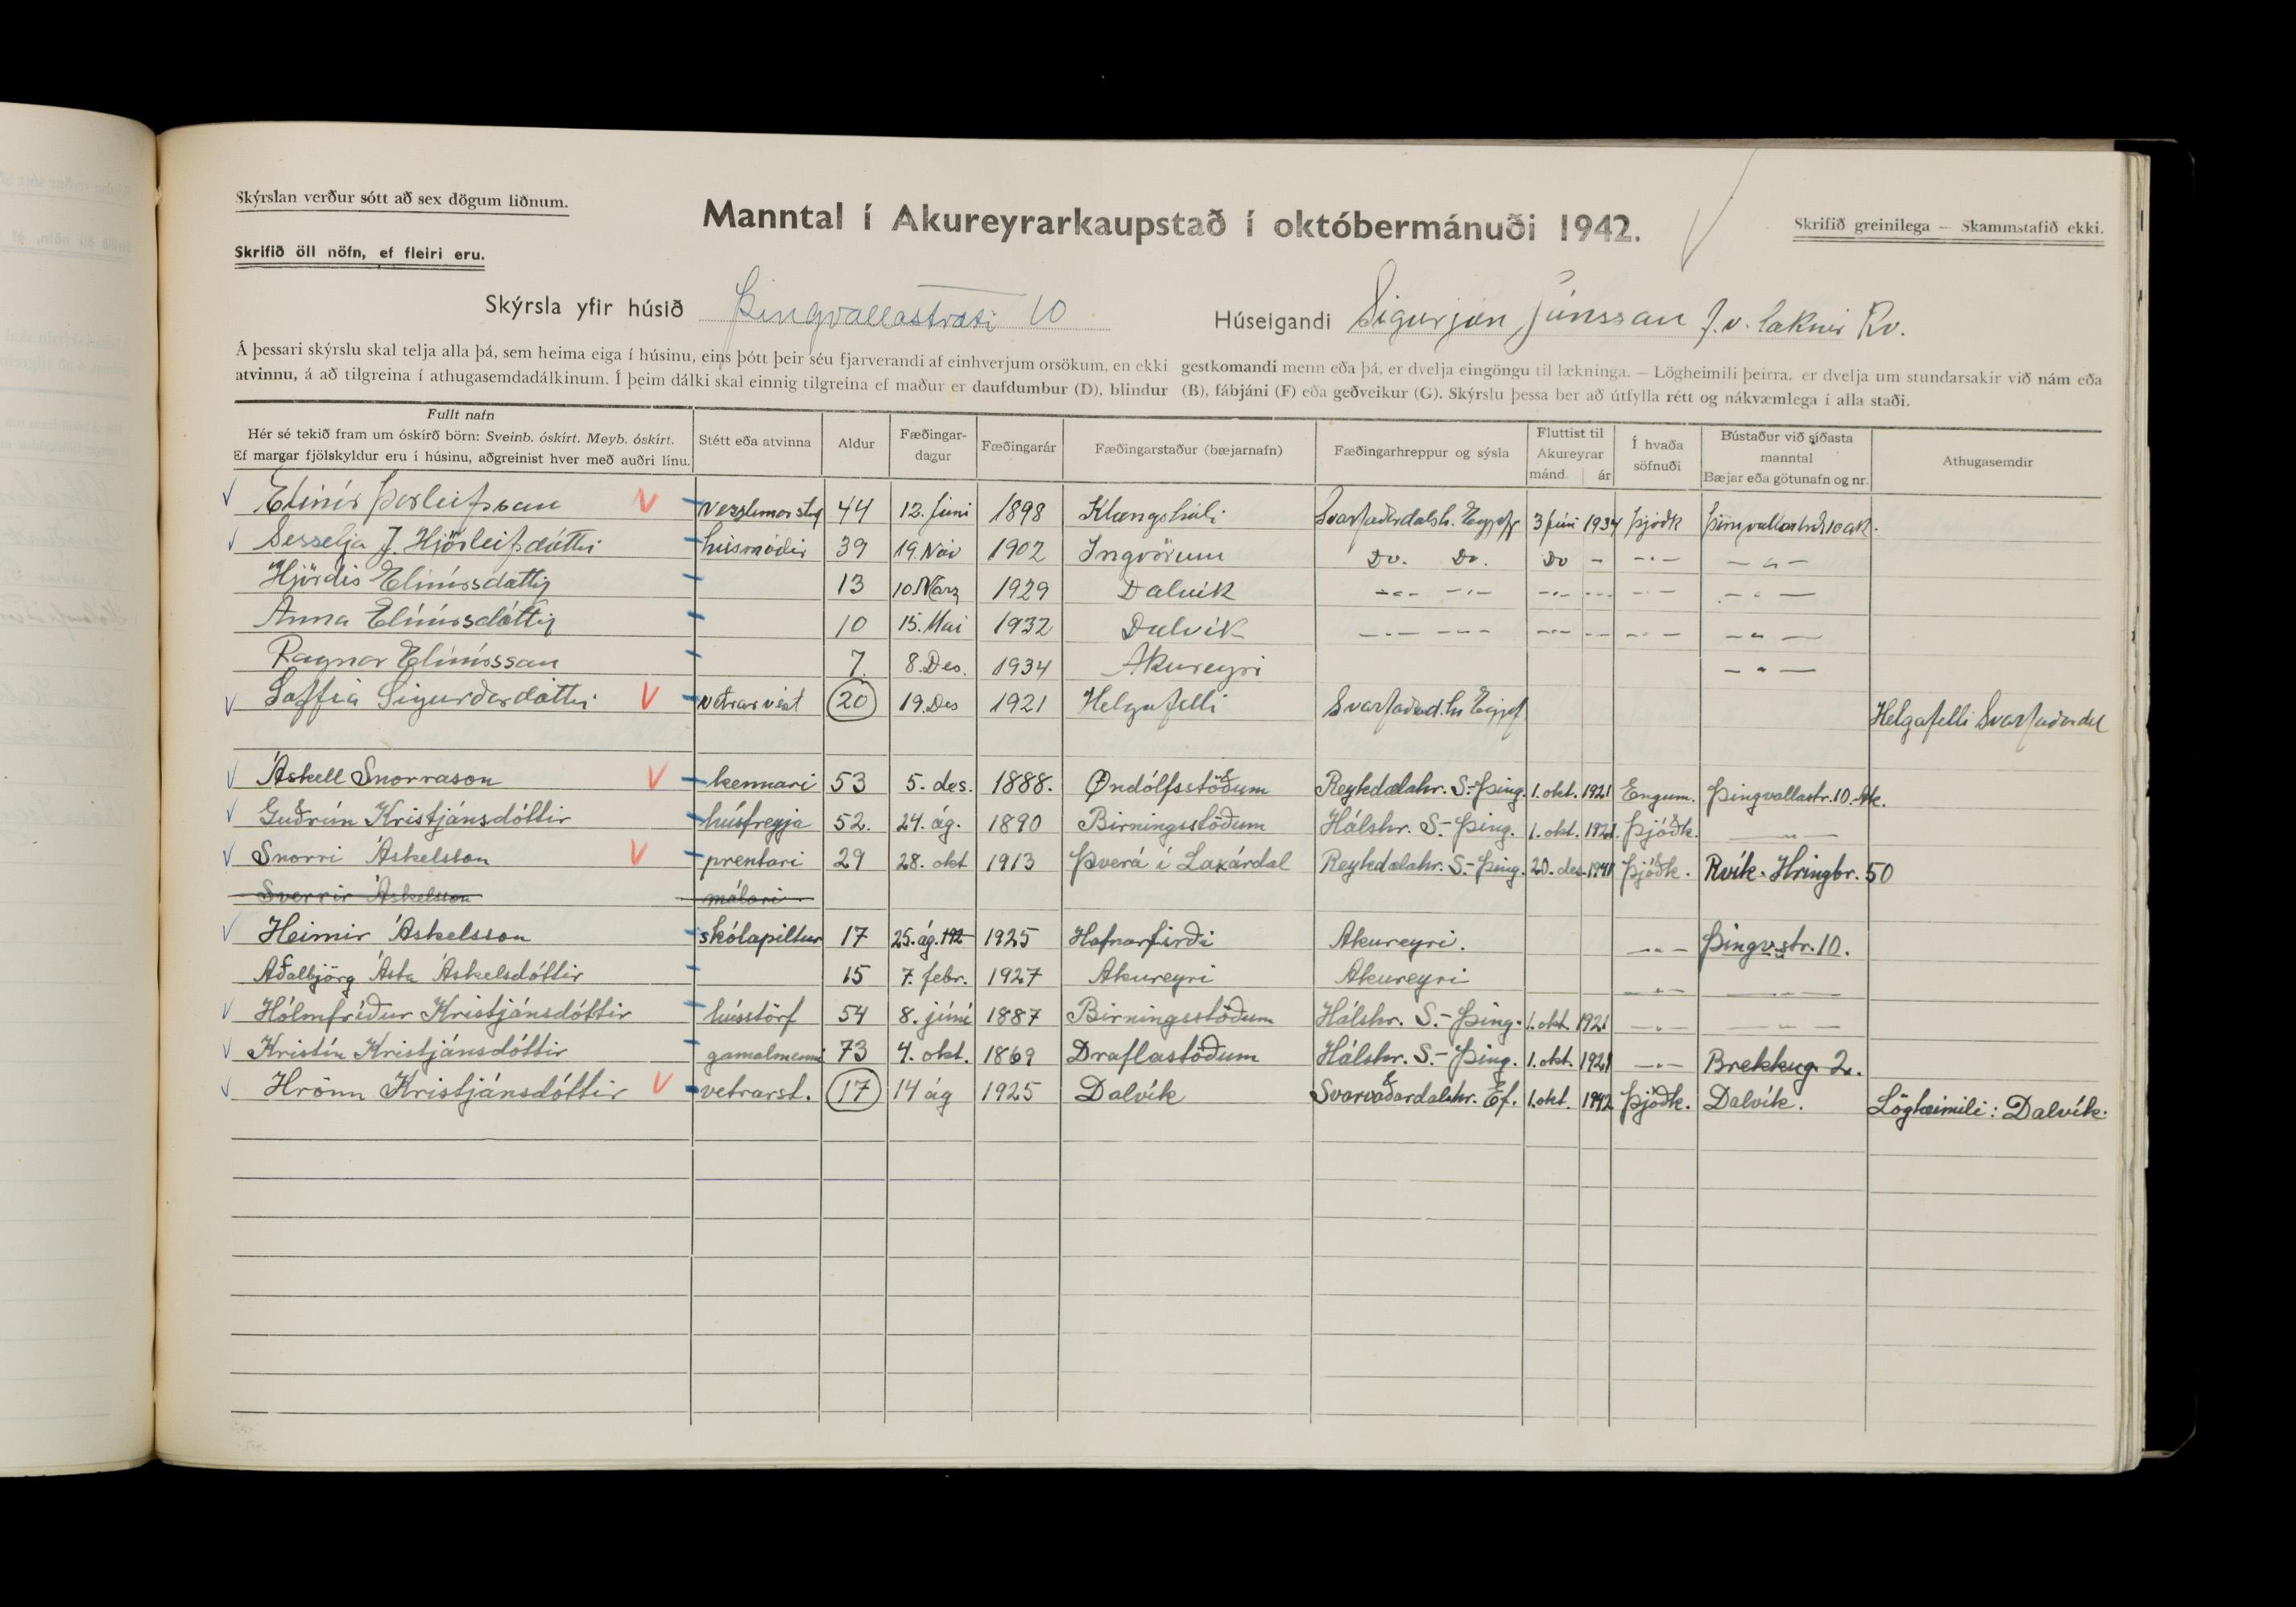 Skýrslan verður sótt að sex dögum liðnum.
Skrifið öll nöfn, ef fleiri eru.
Manntal í Akureyrarkaupstað í októbermánuði 1942.
Skrifið greinilega — Skammstafið ekki.
Skýrsla yfir húsið Þingvallastræti 10 Húseigandi Sigurjón Jónsson f.v. læknir Rv.
Á þessari skýrslu skal telja alla þá, sem heima eiga í húsinu, eins þótt þeir séu fjarverandi af einhverjum orsökum, en ekki gestkomandi menn eða þá, er dvelja eingöngu til lækninga. — Lögheimili þeirra, er dvelja um stundarsakir við nám eða
atvinnu, á að tilgreina í athugasemdadálkinum. Í þeim dálki skal einnig tilgreina ef maður er daufdumbur (D), blindur (B), fábjáni (F) eða geðveikur (G). Skýrslu þessa ber að útfylla rétt og nákvæmlega í alla staði.
Fullt nafn
Hér sé tekið fram um óskírð börn: Sveinb. óskírt. Meyb. óskírt.
Ef margar fjölskyldur eru í húsinu, aðgreinist hver með auðri línu.
Stétt eða atvinna
Aldur
Fæðingar-
dagur
Fæðingarár
Fæðingarstaður (bæjarnafn)
Fæðingarhreppur og sýsla
Fluttist til
Akureyrar
mánd. ár
Í hvaða
söfnuði
Bústaður við síðasta
manntal
Bæjar eða götunafn og nr.
Athugasemdir
Elinór Þorleifsson 44 12. Júni 1898 Klængshóli 3 Júni 1934 Þjóðk
Sesselja J. Hjörleifsdóttir húsmóðir 39 19. Nóv 1902 Ingvörum Do. Do. Do - -„- -„-
Hjördís Elinórsdóttir 13 10 Marz 1929 Dalvík -„- -„- -„- -„- -„- -„-
Anna Elinórsdóttir 10 15. Mai 1932 Dalvík -„- -„- -„- -„- -„- -„-
Ragnar Elinórsson 7 8. Des. 1934 Akureyri -„-
Soffia Sigurðardóttir vetrarvist 20 19. Des 1921 Helgafelli Helgafelli Svarfaðardal
Áskell Snorrason kennari 53 5. des. 1888. Öndólfsstöðum Reykdælahr. S.-Þing. 1. okt. 1921 Engum. Þingvallastr. 10. Ak.
Guðrún Kristjánsdóttir húsfreyja 52. 24. ág. 1890 Birningsstöðum Hálshr. S.-Þing. 1. okt. 1921. Þjóðk. -„-
Snorri Áskelsson prentari 29 28. okt 1913 Þverá í Laxárdal Reykdælahr. S.-Þing. 20. des. 1941 Þjóðk. Rvík. Hringbr. 50
Sverrir Áskelsson málari
Heimir Áskelsson skólapiltur 17 25. ág. 192 1925 Hafnarfirði Akureyri. -„- Þingv.str. 10.
Aðalbjörg Ásta Áskelsdóttir 15 7. febr. 1927 Akureyri Akureyri -„- -„-
Hólmfríður Kristjánsdóttir hússtörf 54 8. júní 1887 Birningsstöðum Hálshr. S.-Þing. 1. okt. 1921 -„- -„-
Kristín Kristjánsdóttir gamalmenni 73 4. okt. 1869 Draflastöðum Hálshr. S.-Þing. 1. okt. 1921 -„- Brekkug. 2.
Hrönn Kristjánsdóttir vetrarst. 17 14 ág 1925 Dalvík Svarvaðardalshr. Ef. 1. okt. 1942 Þjóðk. Dalvík. Lögheimili: Dalvík.